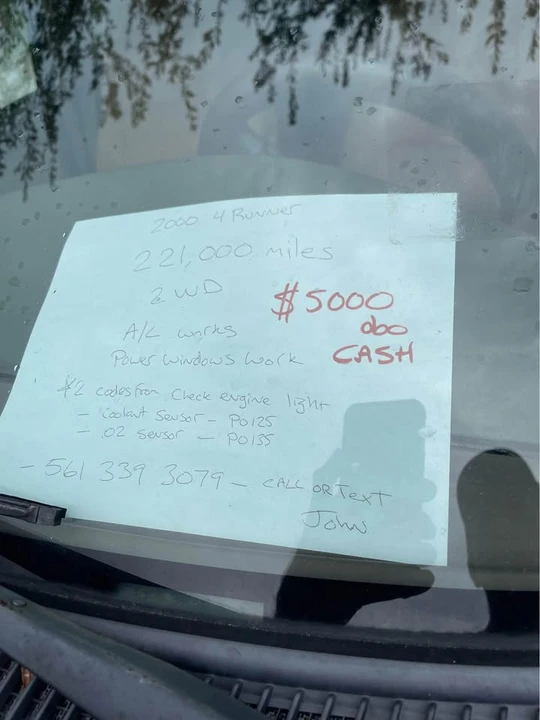 2000 4 Runner
221,000 miles
2 WD
$5000
obo
A/C works
Power windows work
CASH
*2 codes from check engine light
- Coolant Sensor - P0125
- O2 sensor - P0135
- 561 339 3079 - CALL OR Text
John